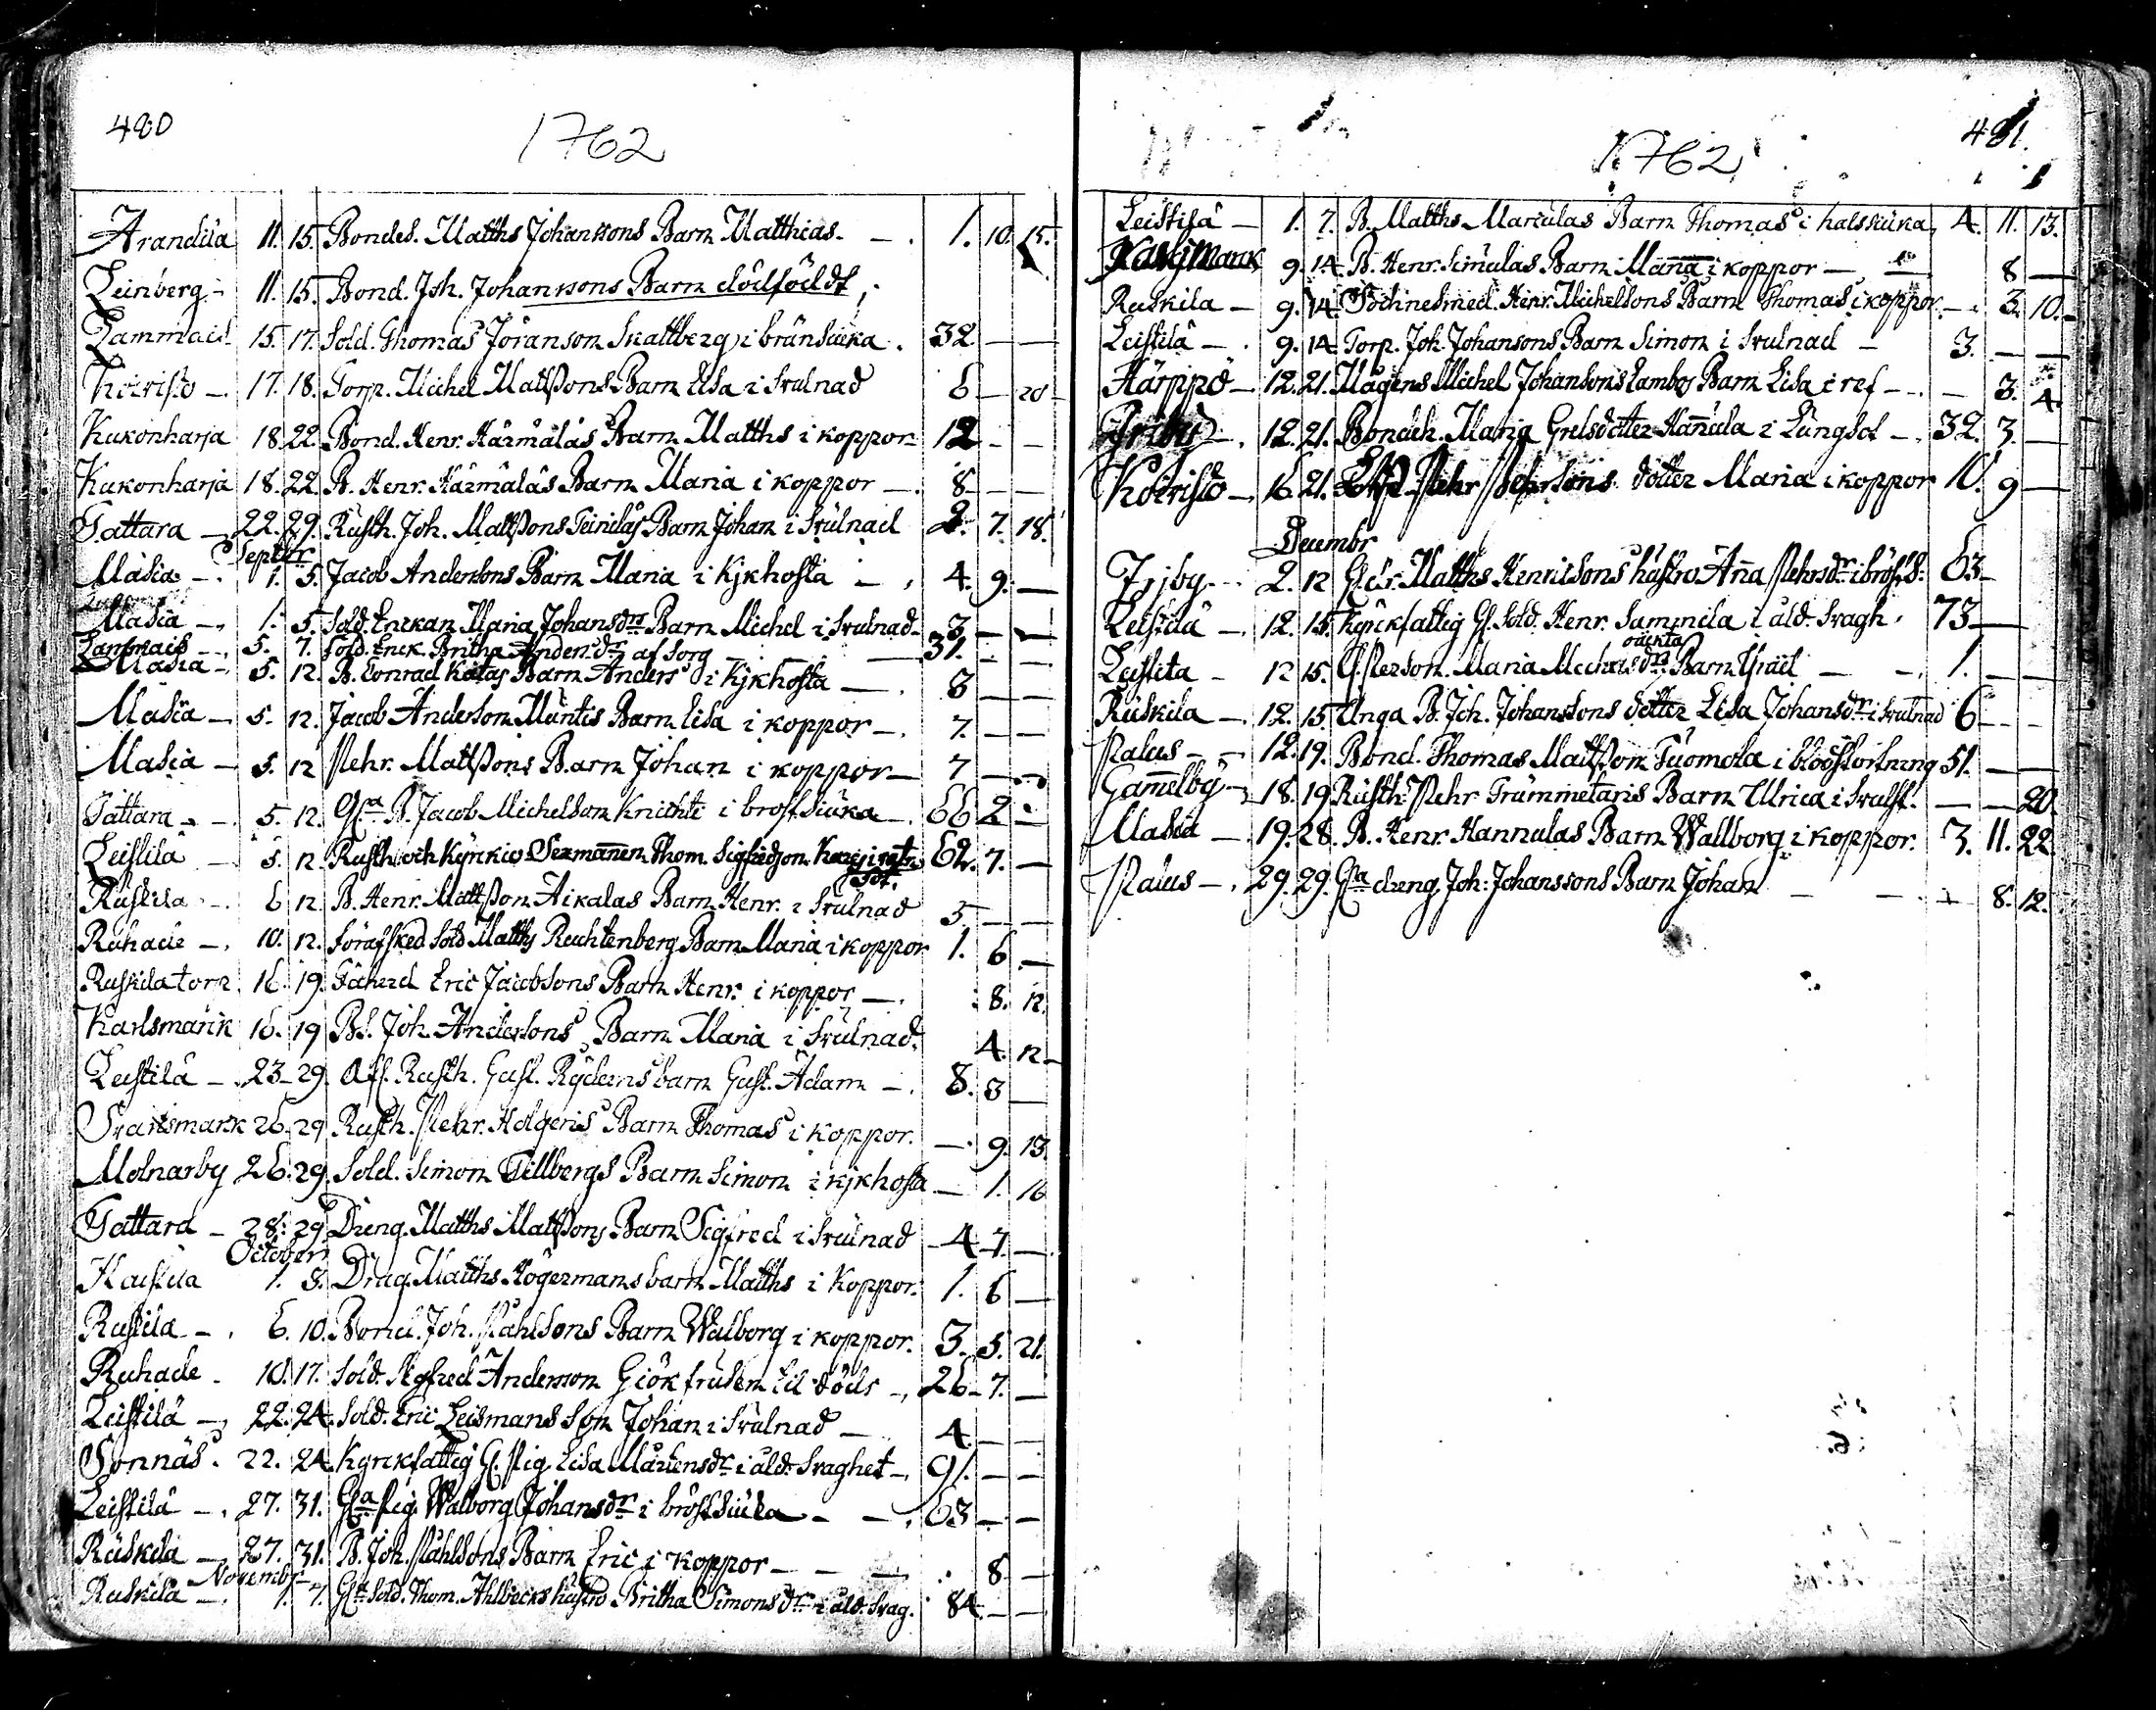 480
1762
Arandila 11. 15. Bondes. Matths Johanssons Barn Matthias. - 1. 10. 15.
Leinberg - 11. 15. Bond. Joh. Johanssons Barn dödfödt,
Lammais 15. 17. Sold. Thomas Jöranson Skattberg i brünsiuka. 32. - -
Koivisto - 17. 18. Torp. Michel Matssons Barn Lisa i Svulnad 6 - 20 -
Kukonharja 18. 22. Bond. Henr. Härmäläs Barn Matths i koppor 12 - -
Kukonharja 18. 22. B. Henr. Härmäläs Barn Maria i koppor - 8 - -
Tattara - 22. 29. Rusth. Joh. Matssons Teiniläs Barn Johan i Svulnad 2. 7. 18.
Septbr
Masia - 1. 5. Jacob Andersons Barn Maria i Kjkhosta - 4. 9. -
Masia - 1. 5. Sold. Enckan Maria Johansdrs Barn Michel i Svulnad 3 - -
Lammais - 5. 7. Sold. Enck. Britha Anders dr af Sorg - 31. - -
Masia - 5. 12. B. Conrad Kiatas Barn Anders i Kjkhosta - 8 - -
Masia - 5. 12. Jacob Anderson Müntis Barn Lisa i koppor - 7. - -
Masia - 5. 12 Pehr. Matssons Barn Johan i koppor - 7 - -
Tattara - 5. 12. Gla B. Jacob Michelson Knichti i brostsiuka - 66 2 -
Leistilä - 5. 12. Rusth och Kyrkiov Sexmannen Thom. Sigfredson 62. 7. -
Ruskila - 6 12. B. Henr. Mattsson Aikalas Barn Henr. i Svulnad 5 - -
Ruhade - 10. 12. Förafsked Sold Matths Ruchtenberg Barn Maria i koppor 1. 6 -
Ruskila torp 16. 19. Fäherd Eric Jacobsons Barn Henr. i koppor - 8. 12.
Karlsmark 16. 19 Bd. Joh. Andersons Barn Maria i Svulnad. 4. 12 -
Leistilä - 23 - 29. Aff. Rusth. Gust. Rydens barn Gust. Adam - 8. 8 -
Svartsmark 26. 29 Rusth. Pehr. Holgeris Barn Thomas i koppor. - 9. 13.
Molnarby 26. 29. Sold. Simon Tillbergs Barn Simon i kjkhosta - 1. 16
Tattara - 28. 29. Dreng. Matths Matssons Barn Sigfred i Svulnad - 4 - 7. -
October
Haistila 1. 3. Drag. Matths Högermans barn Matths i Koppor. 1. 6 -
Ruskila - 6. 10. Bond. Joh. Påhlsons Barn Walborg i koppor. 3. 5. 21.
Ruhade - 10. 17. Sold. Sigfred Anderson Giök frusen til döds - 26 - 7. -
Leistilä - 22. 24. Sold. Eric Leismans Son Johan i Svulnad - 4. - -
Sonnäs. 22. 24. Kyrckfattig Gl. Pig. Lisa Mårtensdr i ålds Svaghet - 91. - -
Leistilä - 27. 31. Gla Pig. Walborg Johansdr i bröstsiuka - - 63 - -
Ruskila - 27. 31. B. Joh. Påhlsons Barn Eric i koppor - - - 8 -
Novembr
Ruskila - 1. 7. Gla Sold. Thom. Ahlbecks hustro Britha Simonsdr i åld. Svag. 84 - -
481.
1762
Leistilä - 1. 7. B. Matths Marculas Barn Thomas i halssiuka, 4. 11. 13.
Kaskimark 9. 14 B. Henr. Simulas Barn Manna i koppor - - 8 -
Ruskila - 9. 14 Henr. Michelsons Barn Thomas i koppor - 3. 10. -
Leistilä - 9. 14 Torp. Joh. Johansons Barn Simon i Svulnad - 3. - -
Härppö - 12. 21. Mågens Michel Johansons Lambs Barn Lisa i ref - - 3. 4.
Friby - 12. 21. Bondeh. Maria Grelsdotter Hannula i Lungsot - 32. 3. -
Koivisto - 16 21. Pehr Pehrsons dotter Maria i koppor 10. 9 -
Decembr
Isjby - 2. 12 Matths Henricsons hustro Anna Pehrsdr i bröstsi. 63 -
Leistilä - 12. 15. Kyrckfattig Gl. Sold. Henr. Sammela i åld. Svagh. 73 -
oäckta
Leistila - 12 15. Person. Maria Michelsdrs Barn - - 1. - -
Ruskila - 12. 15 Unga B. Joh. Johanssons dotter Lisa Johansdr i Svulnad 6 - -
Palus - - 12. 19. Bond. Thomas Matsson Tuomola i blodstörtning 51. - -
Gammelby - 18. 19 Rusth. Pehr Trummetaris Barn Ulrica i Svulst. - - 20.
Masia - 19. 28. B. Henr. Hannulas Barn Wallborg i koppor. 3. 11. 22
Palus - 29. 29. Gla dreng Joh. Johanssons Barn Johan - - - 8. 12.